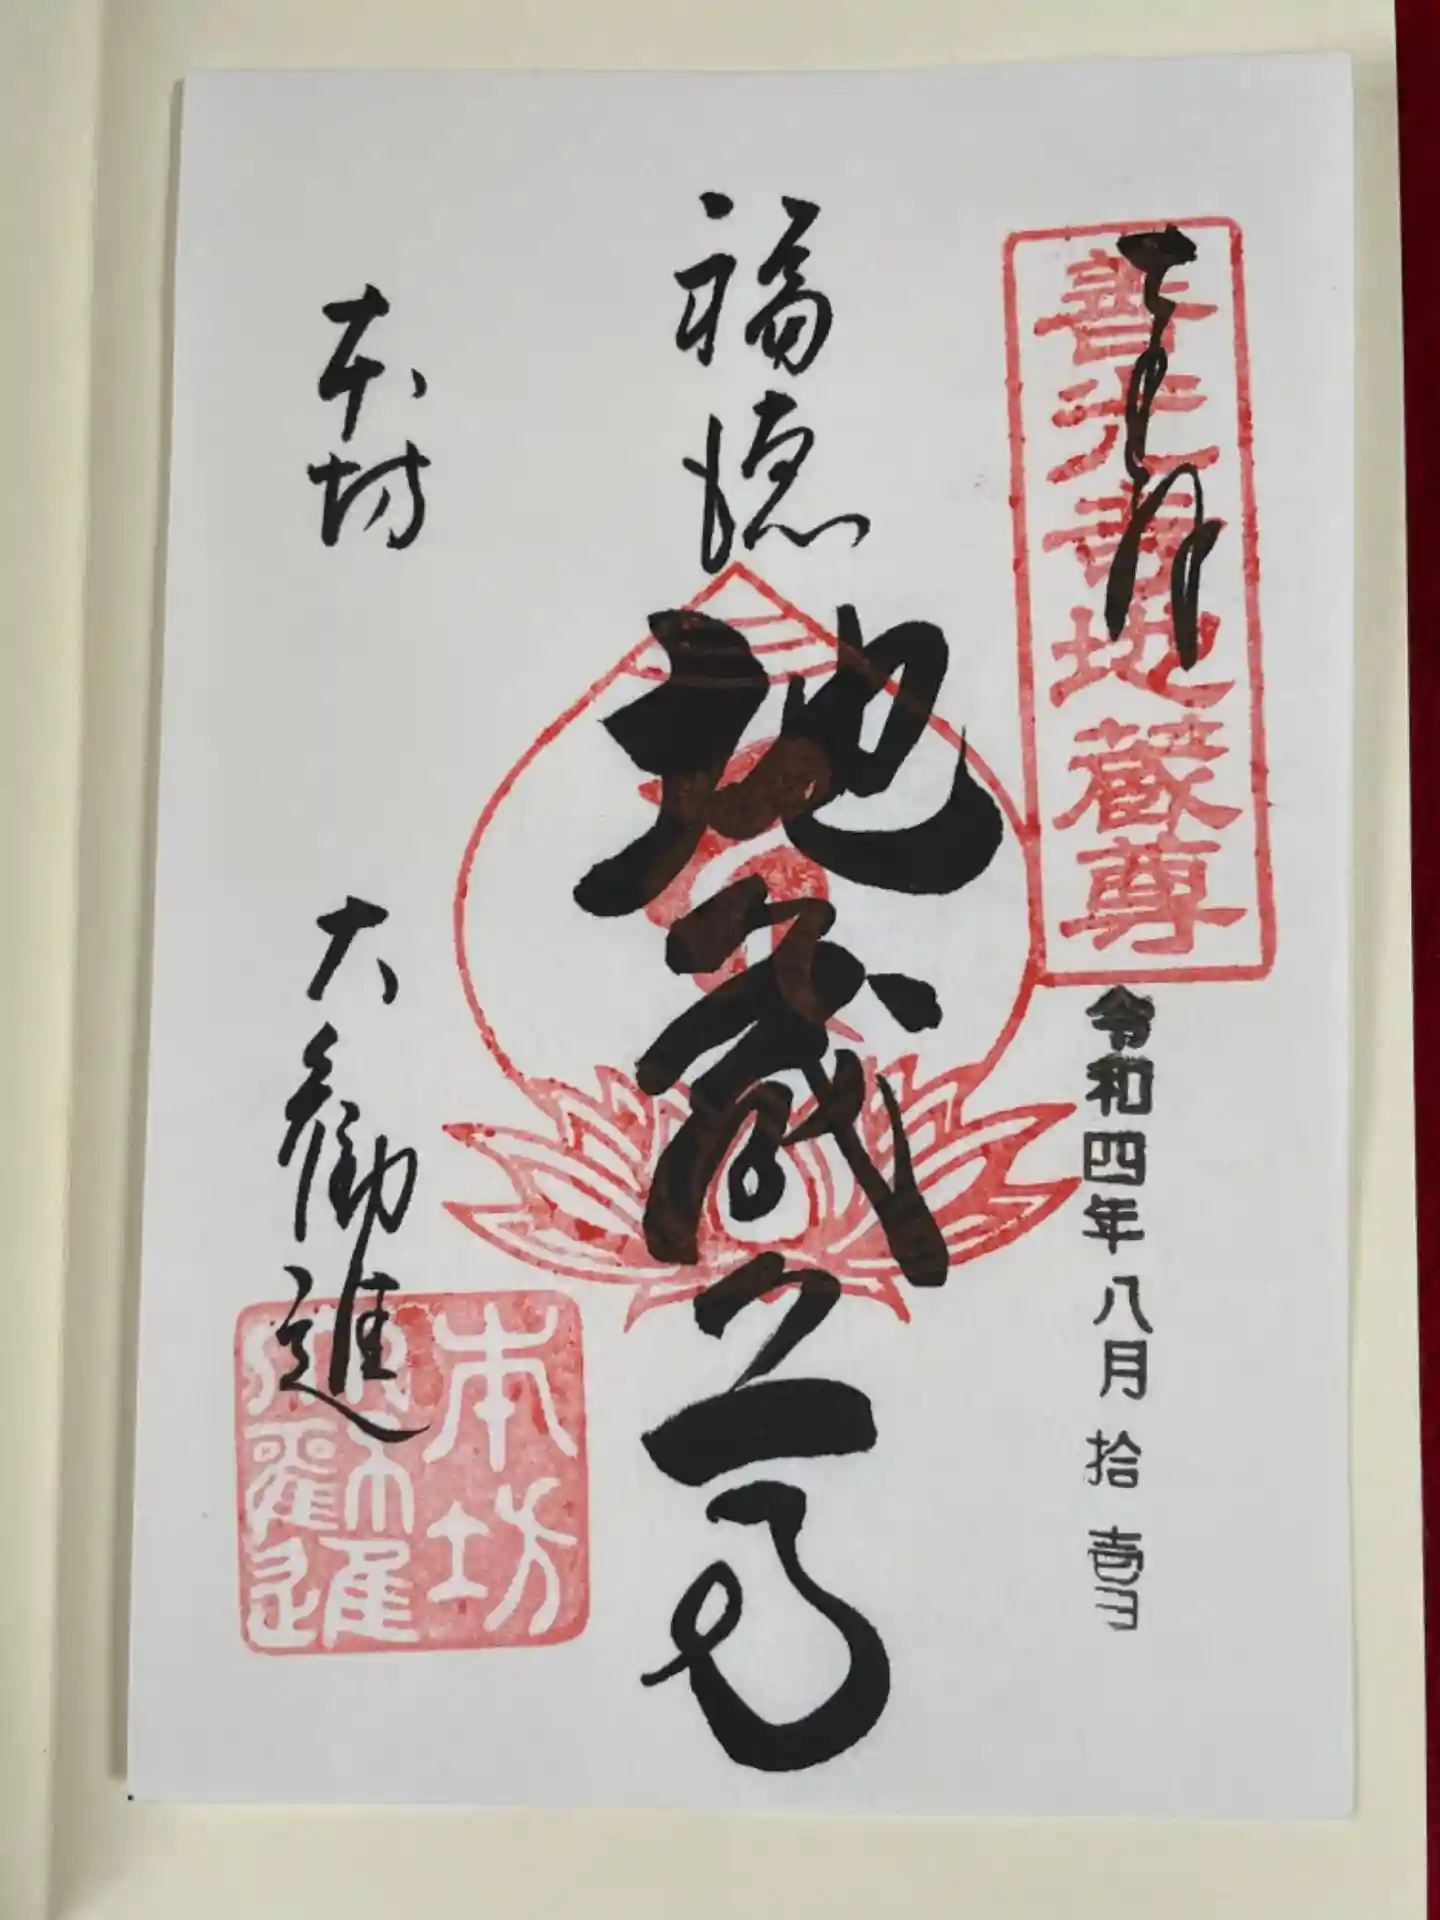 奉拝
善光寺地蔵尊
令和四年八月拾壱
福徳
地蔵尊
本坊
大勧進
本坊